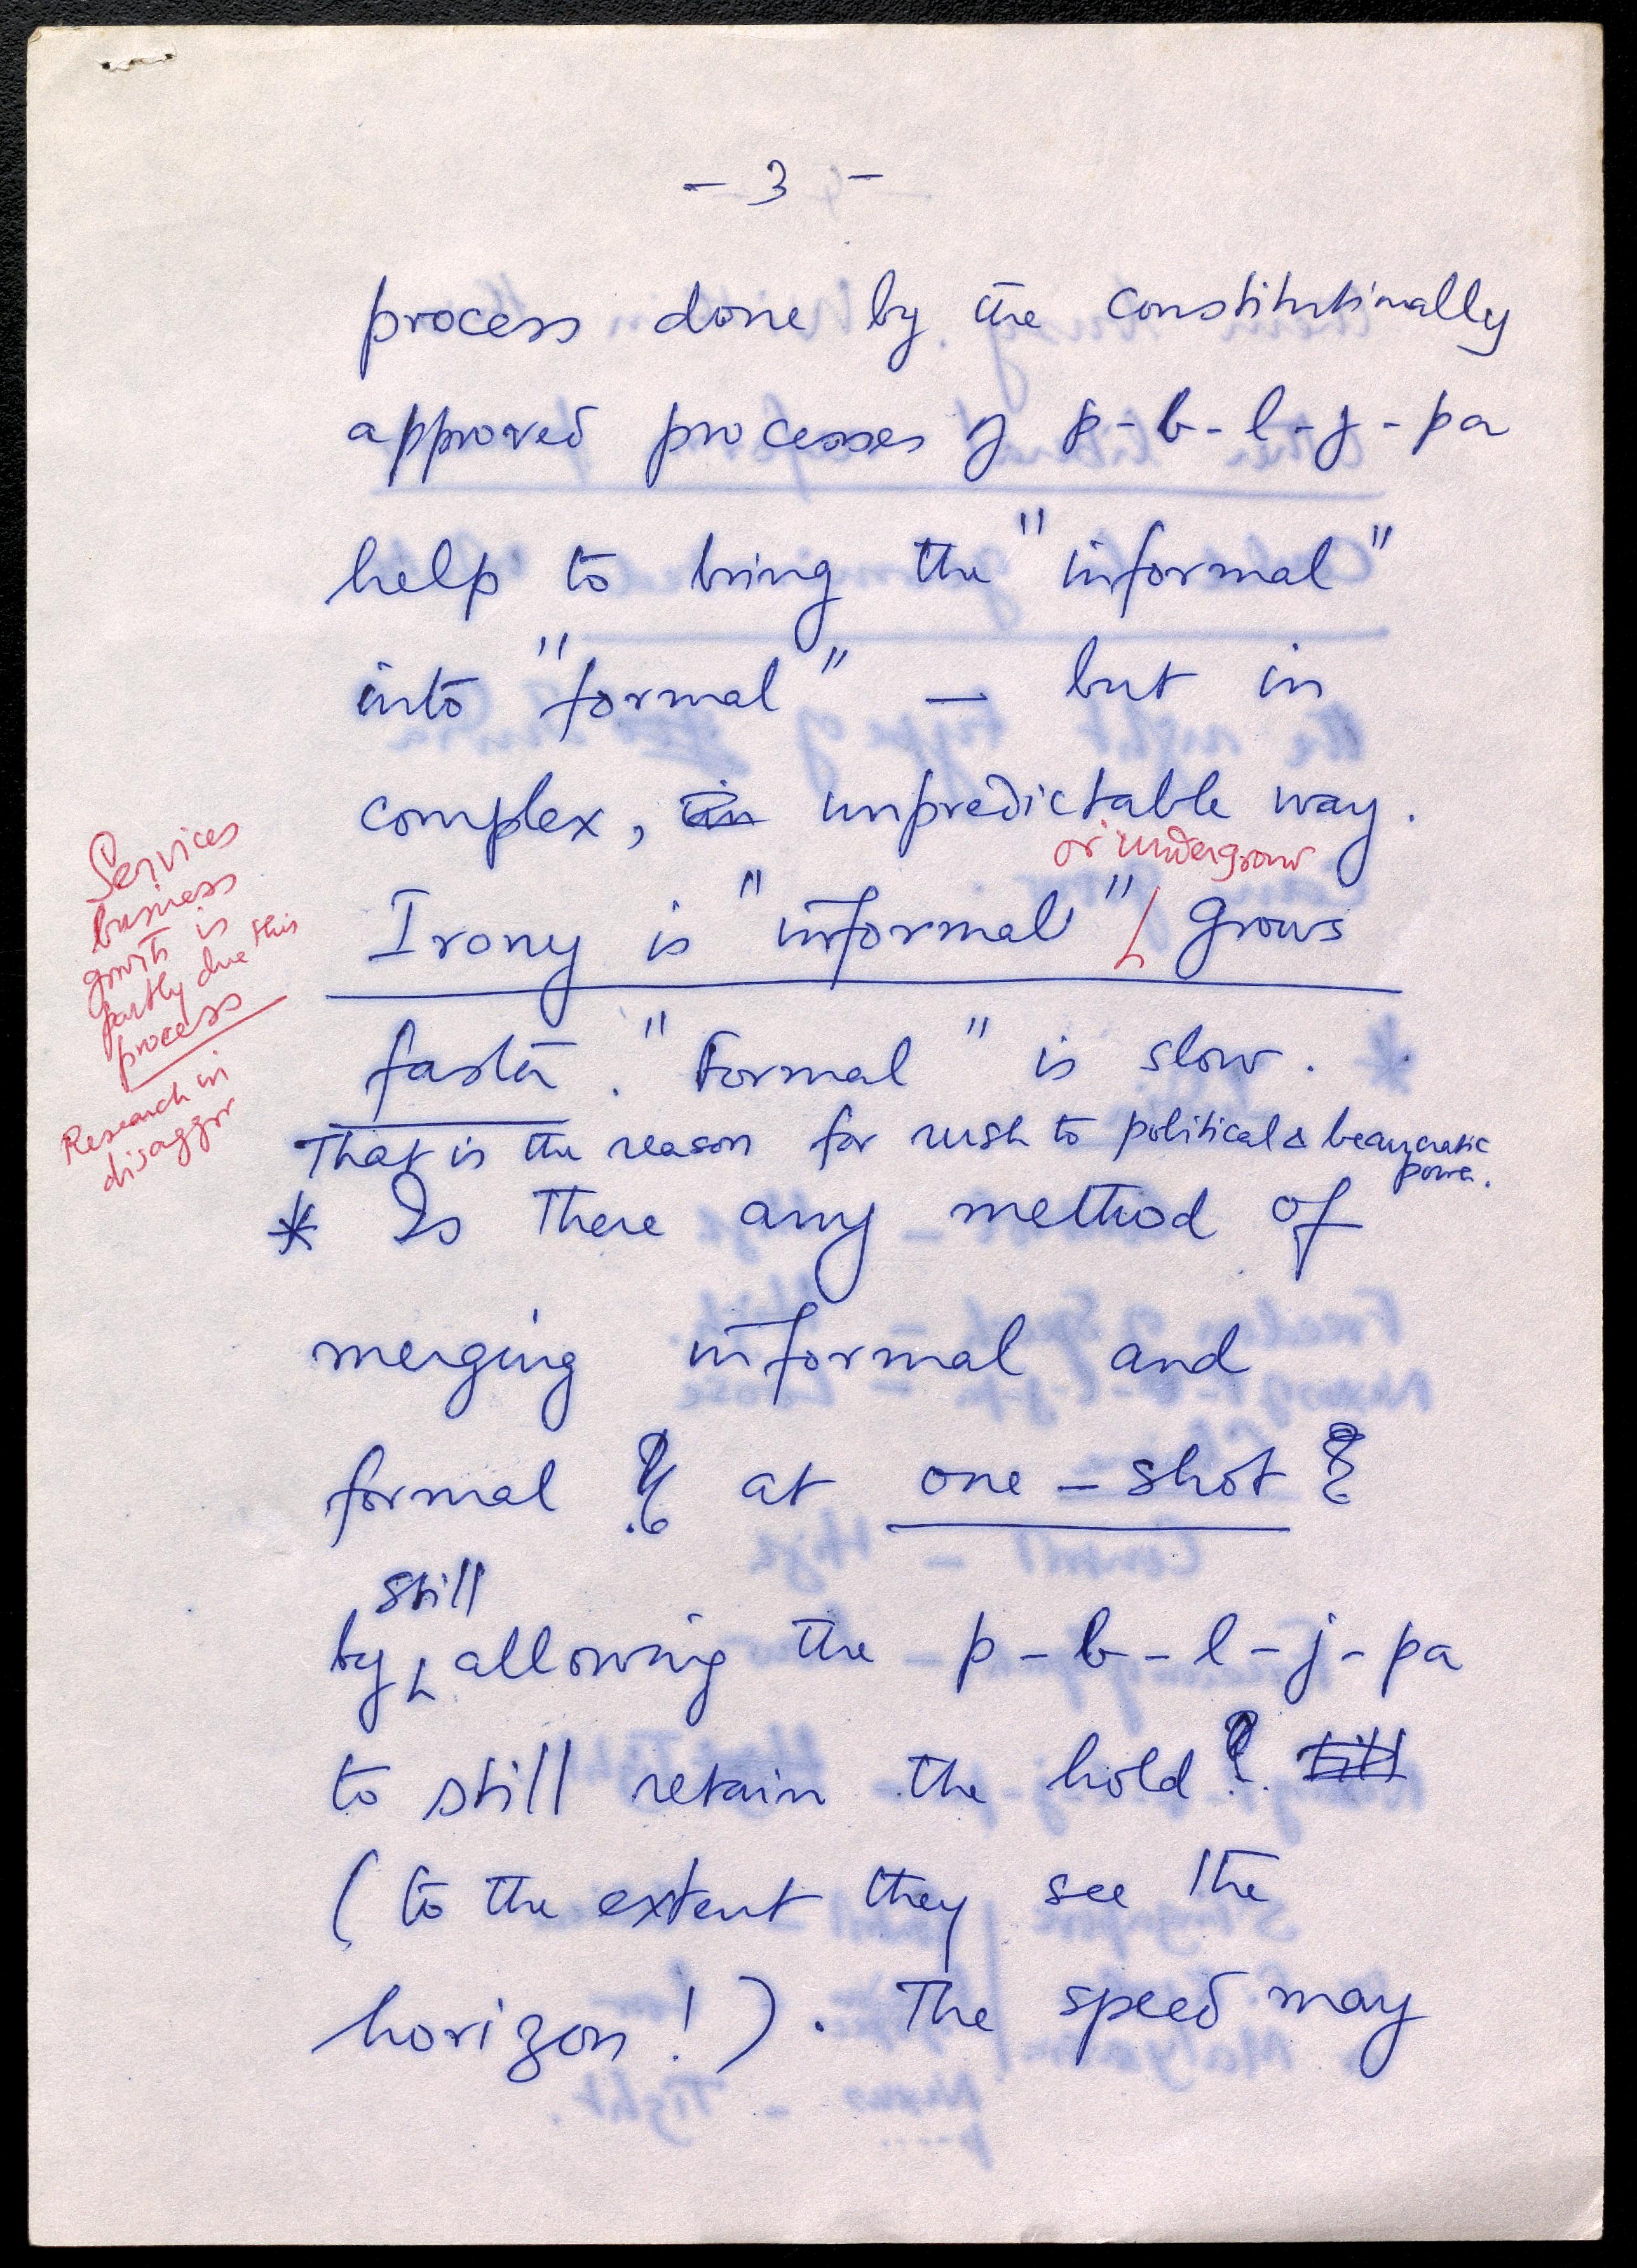 - 3 -
process done by the constitutionally
approved processes of p-b-l-j-pa
help to bring the "informal"
into "formal" - but in
complex, in unpredictable way.
or undergrour
Irony is "informal" grows
faster. "Formal" is slow.
That is the reason for rush to political &
power.
* Is there any method of
merging informal and
formal at one-shot?
still
by allowing the p-b-l-j-pa
to still retain the hold?
(to the extent they see the
horizon!). The speed may
Services
business
growth is
partly due this
process
Research in